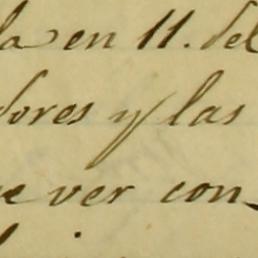 la en 11. del
dores y las
e ver con_